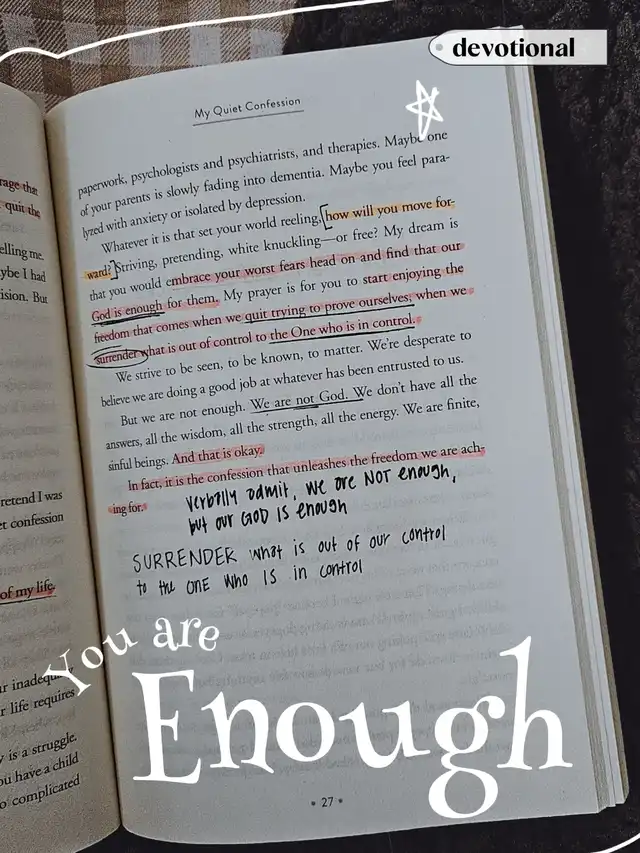 devotional
My Quiet Confession
paperwork, psychologists and psychiatrists, and therapies. Maybe one
of your parents is slowly fading into dementia. Maybe you feel para-
lyzed with anxiety or isolated by depression.
Whatever it is that set your world reeling, how will you move for-
ward? Striving, pretending, white knuckling—or free? My dream is
that you would embrace your worst fears head on and find that our
God is enough for them. My prayer is for you to start enjoying the
freedom that comes when we quit trying to prove ourselves, when we
surrender what is out of control to the One who is in control.
We strive to be seen, to be known, to matter. We're desperate to
believe we are doing a good job at whatever has been entrusted to us.
But we are not enough. We are not God. We don't have all the
answers, all the wisdom, all the strength, all the energy. We are finite,
sinful beings. And that is okay.
In fact, it is the confession that unleashes the freedom we are ach-
ing for.
Verbally admit, we are NOT enough,
but our GOD IS enough
SURRENDER what is out of our control
to the ONE who IS in control
27
rage that
quit the
elling me.
ybe I had
ision. But
retend I was
et confession
of my life.
r life requires
y is a struggle.
ou have a child
o complicated
You are
Enough